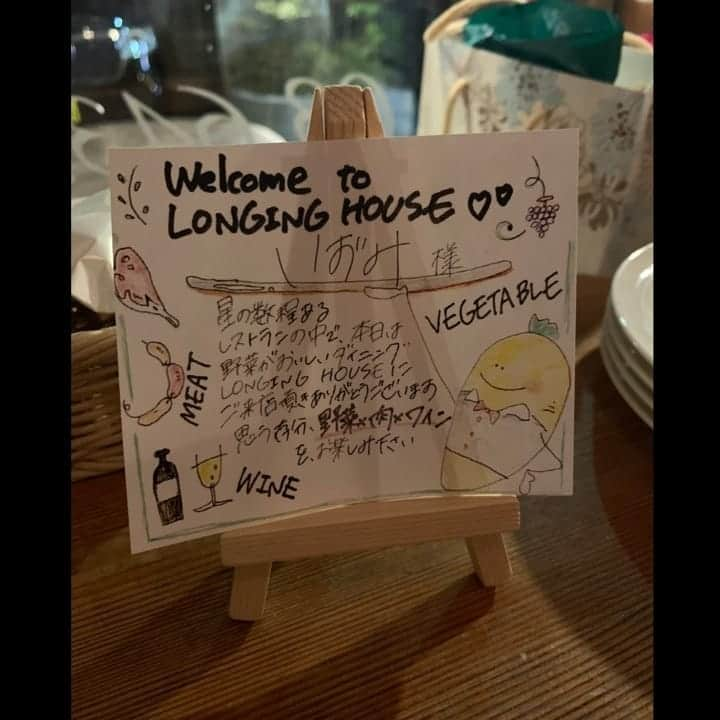 Welcome to
LONGING HOUSE ♡♡
いずみ 様
VEGETABLE
星の数程ある
レストランの中で、本日は
野菜がおいしいダイニング
LONGING HOUSEに
ご来店頂きありがとうございます
思う存分、野菜×肉×ワイン
を、お楽しみ下さい
MEAT
WINE